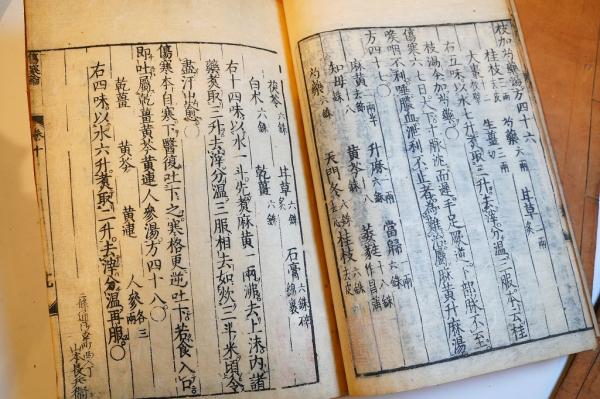 枝加芍藥方四十六
桂枝三兩 芍藥六兩 甘草二兩炙
大棗 生薑三兩
右五味以水七升煮取三升去滓分溫三服本云桂
枝湯今加芍藥○
傷寒六七日大下後寸脈沈而遲手足厥逆下部脈不至
喉咽不利唾膿血泄利不止者為難治屬麻黃升麻湯
方四十七○
麻黃二兩半 升麻 當歸
知母十八銖 黃芩十八銖 萎蕤十八銖一作菖蒲
芍藥六銖 天門冬六銖去心 桂枝六銖去皮
茯苓六銖 甘草六銖炙 石膏六銖碎綿裹
白朮六銖 乾薑六銖
右十四味以水一斗先煮麻黃一兩沸去上沫內諸
藥煮取三升去滓分溫三服相去如炊三斗米頃令
盡汗出愈○
傷寒本自寒下醫復吐下之寒格更逆吐下若食入口
即吐屬乾薑黃芩黃連人參湯方四十八○
乾薑 黃芩 黃連 人參各三兩
右四味以水六升煮取二升去滓分溫再服○
山本長兵衛
傷寒論 卷十